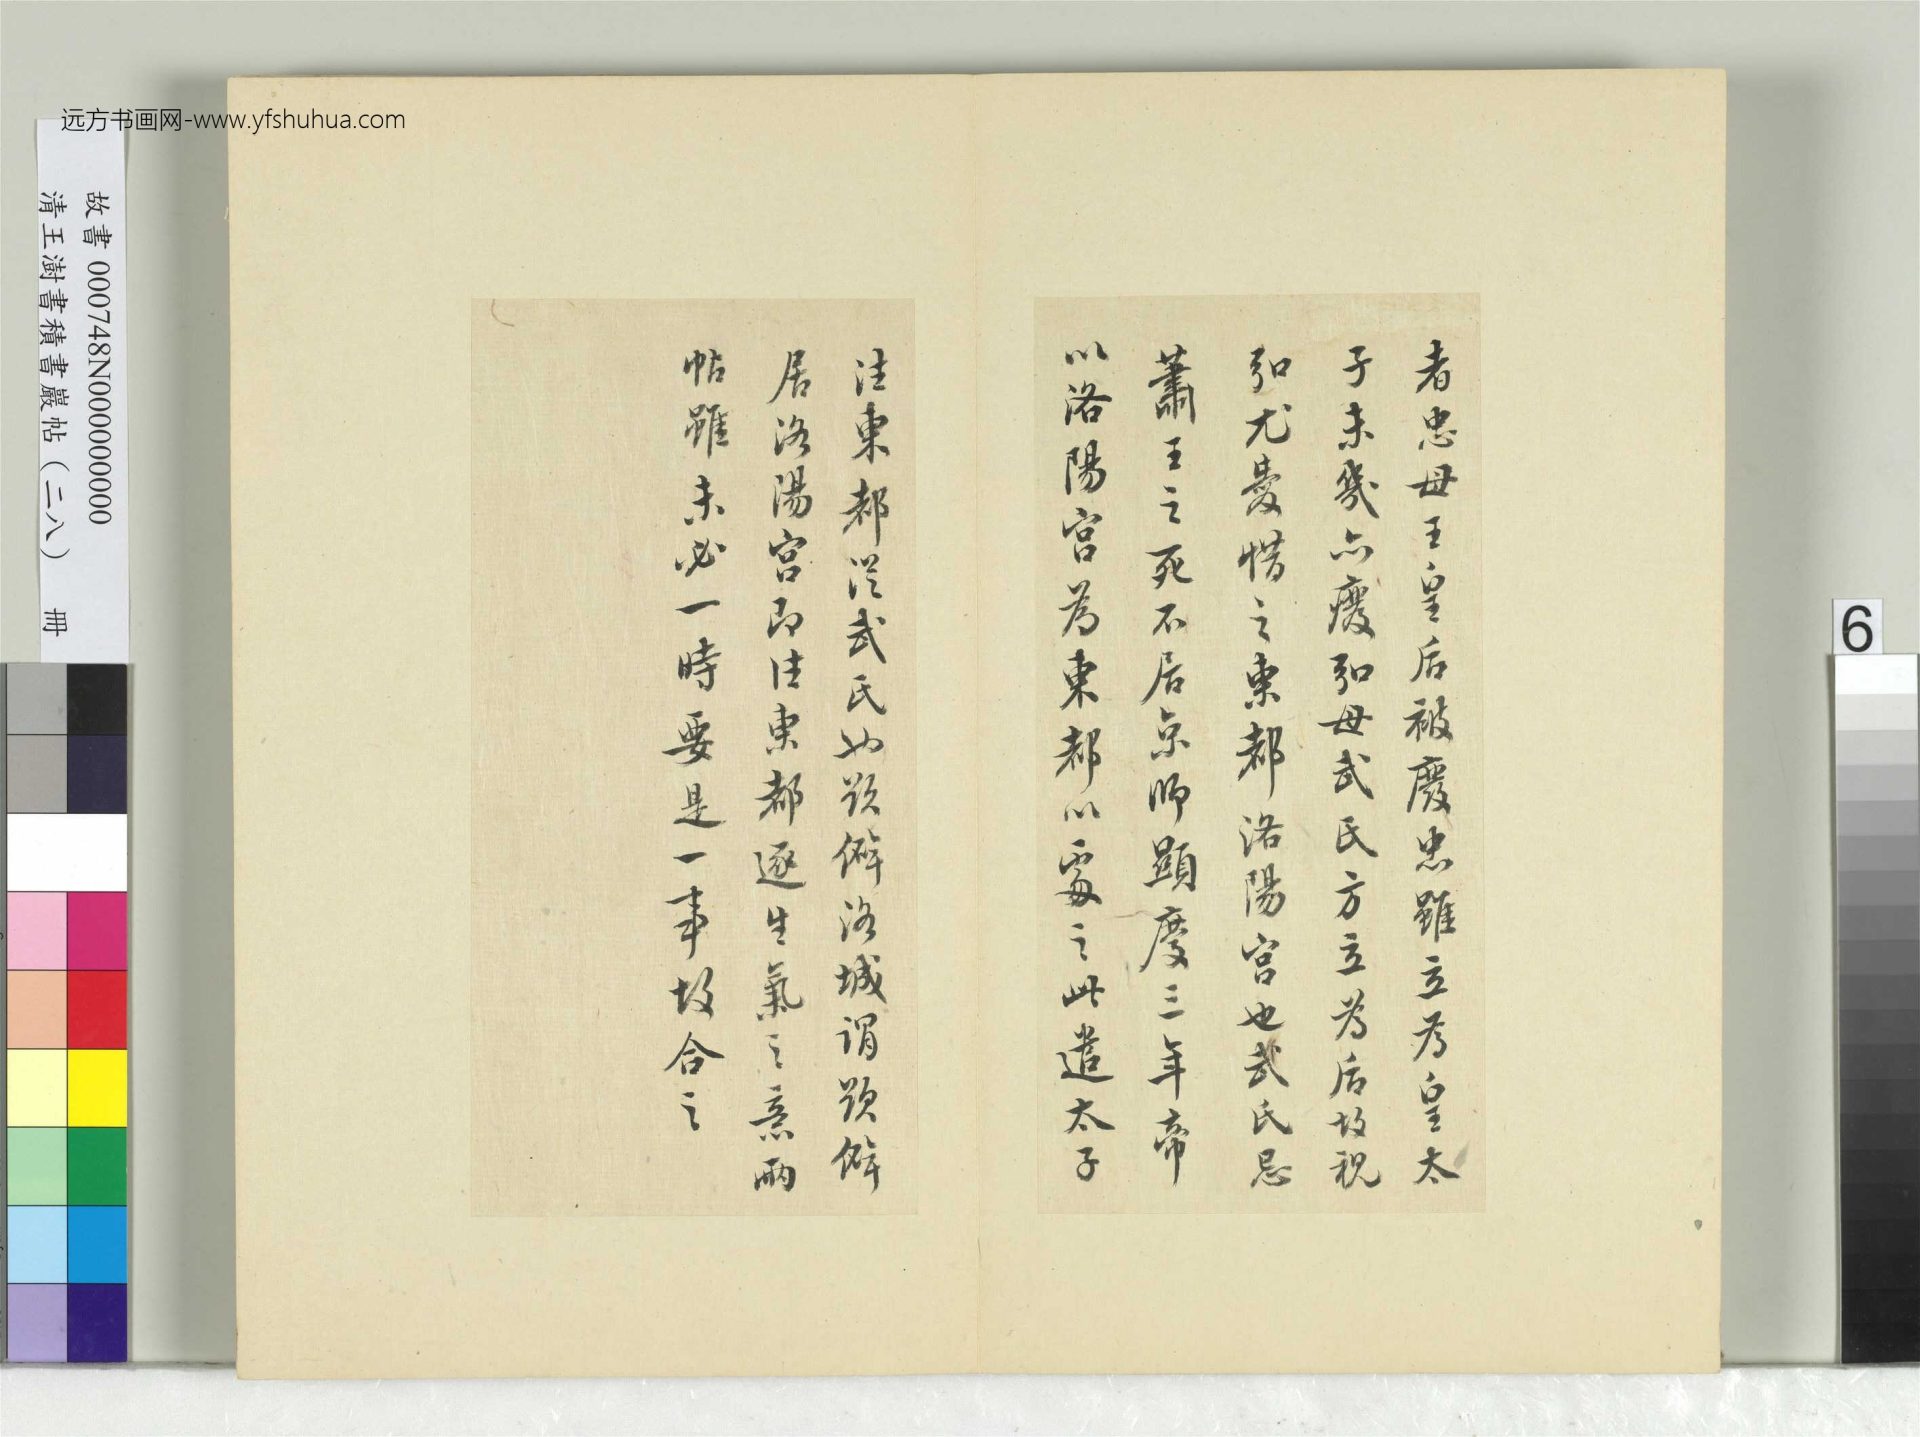 远方书画网-www.yfshuhua.com
故書 000748N000000000
清王澍書積書巖帖(二八) 冊
6
者忠母王皇后被廢忠雖立為皇太
子未幾亦廢弘母武氏方立為后故視
弘尤愛惜之東都洛陽宮也武氏忌
蕭王之死不居京師顯慶三年帝
以洛陽宮為東都以處之此遣太子
往東都從武氏也 僻洛城謂 僻
居洛陽宮即往東都逐生氣之意兩
帖雖未必一時要是一事故合之